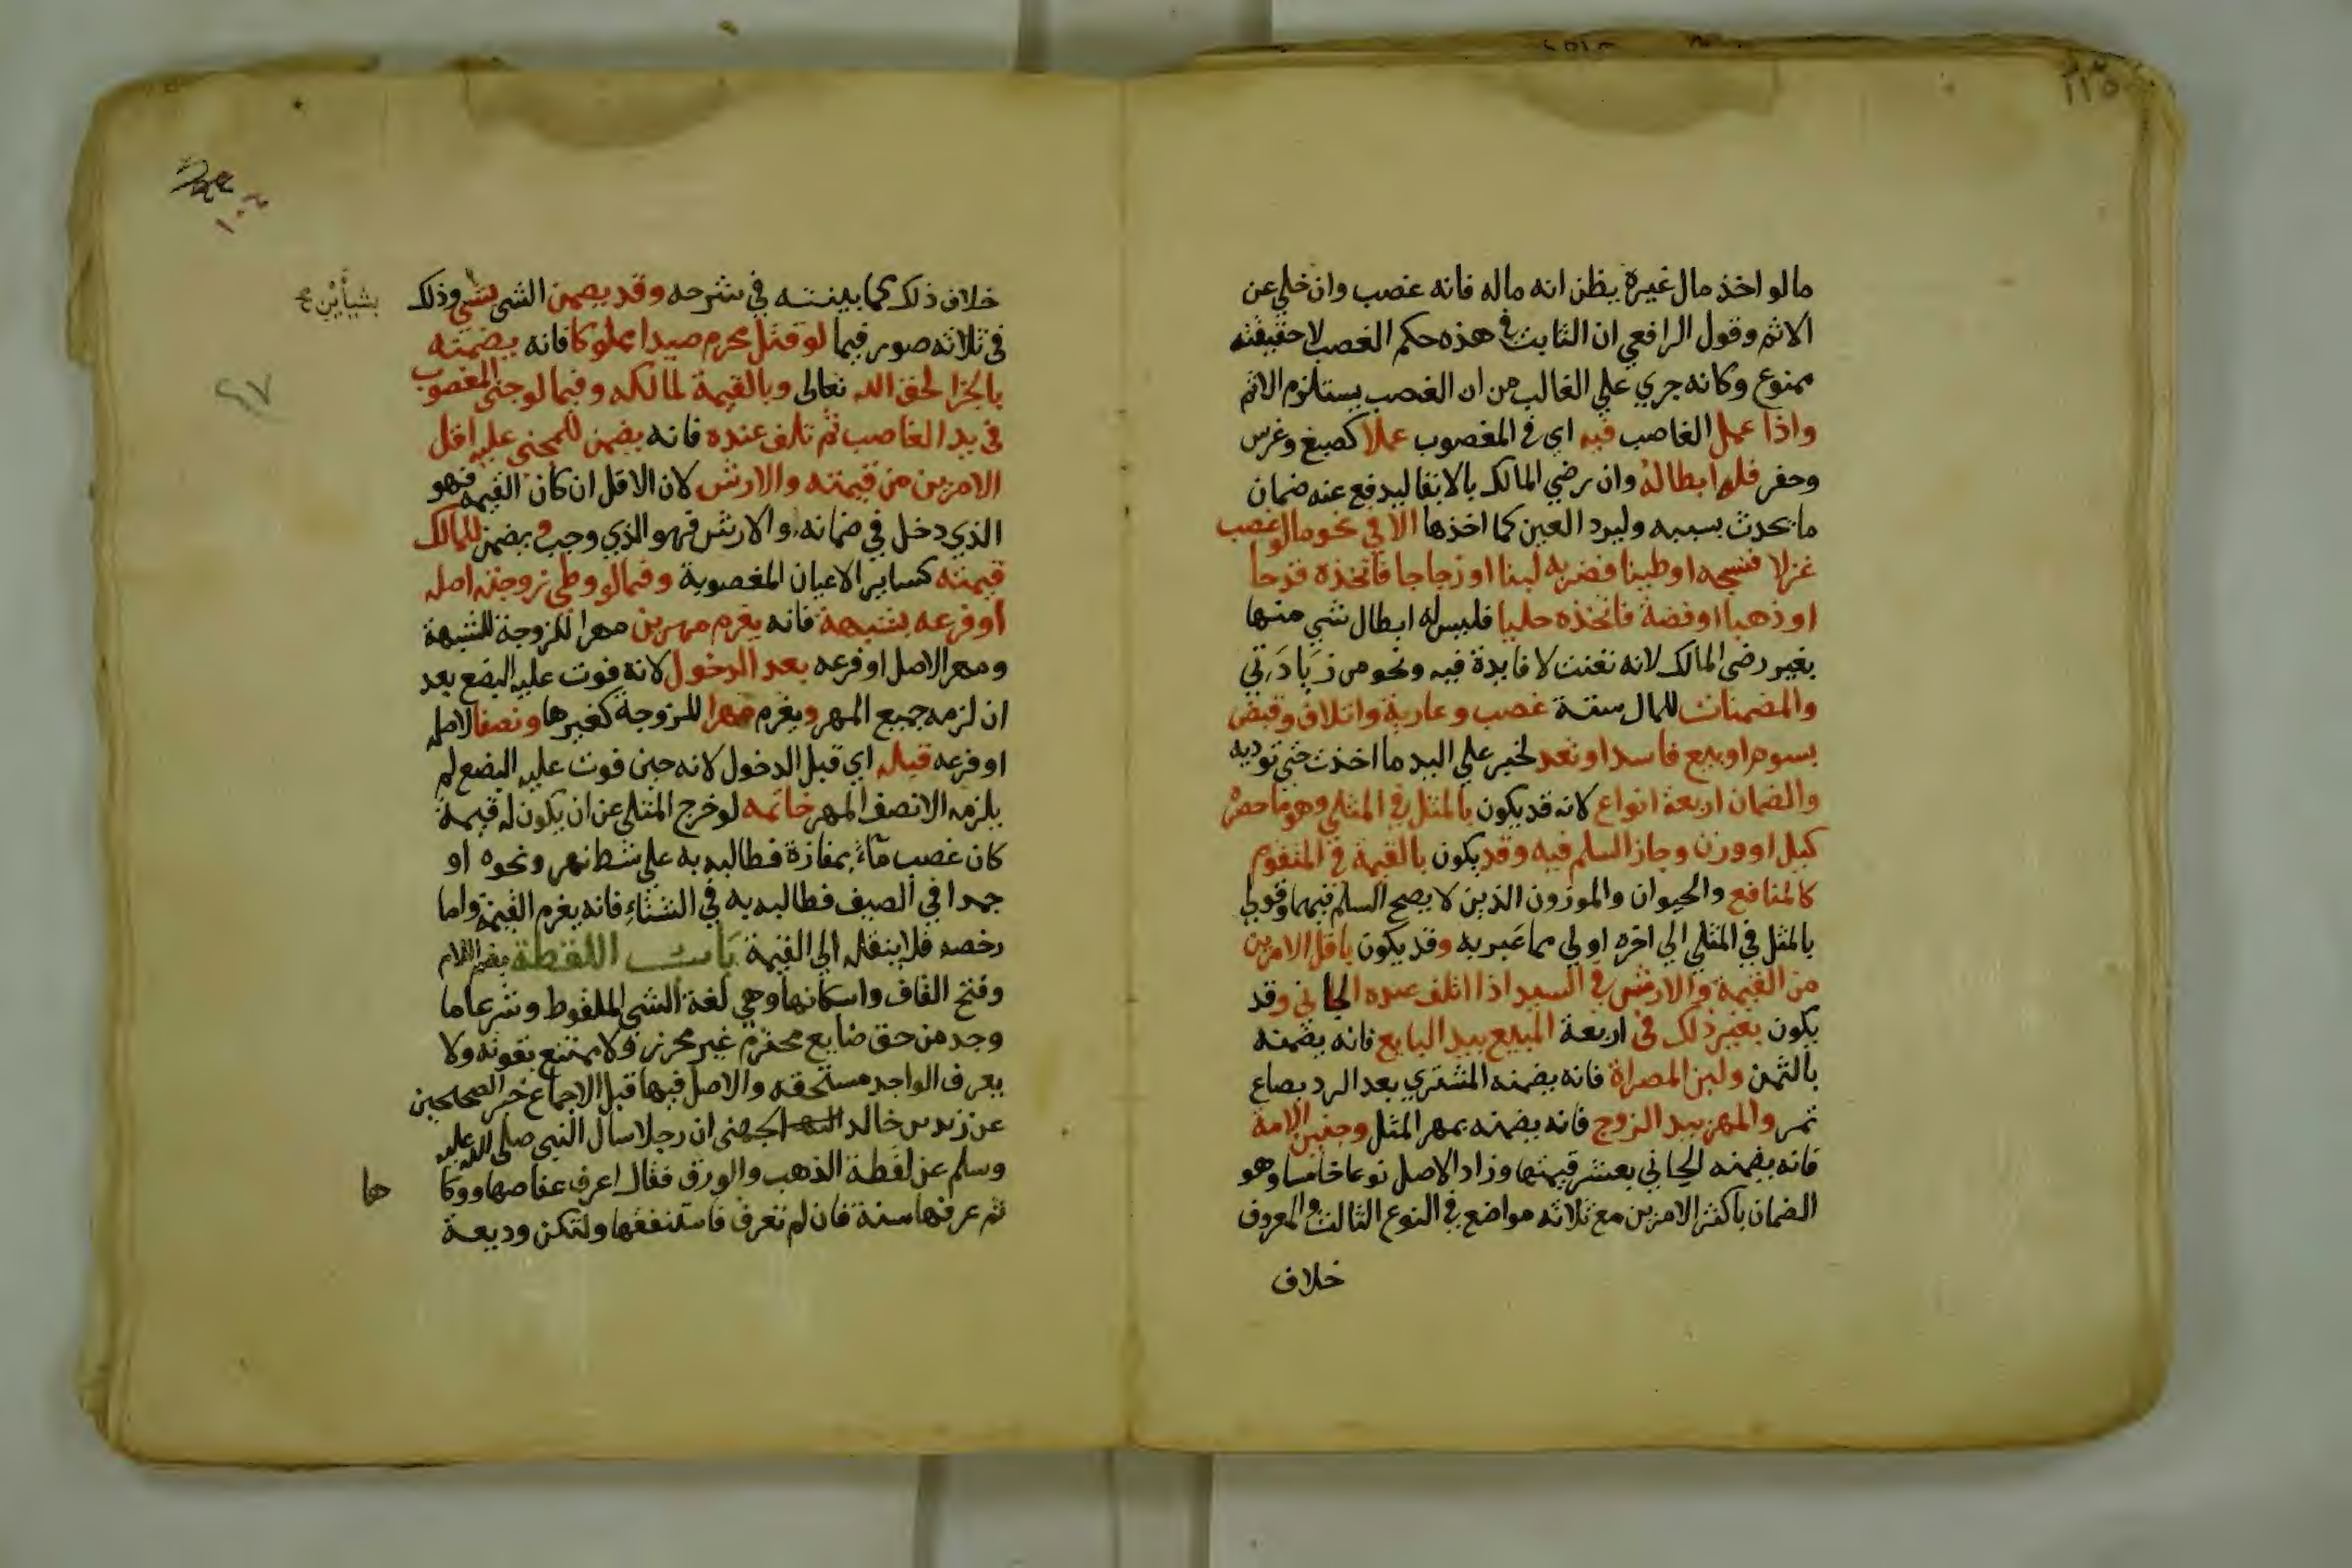 مالو اخذ مال غيره يظن انه ماله فانه غصب وان خلي عن
الاثم وقول الرافعي ان الثابت في هذه حكم الغصب لا حقيقته
ممنوع وكانه جري علي الغالب من ان الغصب يستلزم الاثم
واذا عمل الغاصب فيه اي في المغصوب عملا كصبغ وغرس
وحفر فله ابطاله وان رضي المالك بالابقا ليدفع عنه ضمان
ما يحدث بسببه وليرد العين كما اخذها الا في نحو ما لو غصب
غزلا فنسجه او طينا فضربه لبنا او زجاجا فاتخذه قدحا
او ذهبا او فضة فاتخذه حليا فليس له ابطال شي منها
بغير رضي المالك لانه تعنت لا فايدة فيه ونحو من زيادتي
والمضمنات للمال ستة غصب وعارية واتلاف وقبض
بسوم او بيع فاسد او تعد لخبر علي اليد ما اخذت حتي توديه
والضمان اربعة انواع لانه قد يكون بالمثل في المثلي وهو ما حصره
كيل او وزن وجاز السلم فيه وقد يكون بالقيمة في المتقوم
كالمنافع والحيوان والموزون الذين لا يصح السلم فيهما وقولي
بالمثل في المثلي الي اخره اولي مما عبر به وقد يكون باقل الامرين
من القيمة والارش في السيد اذا اتلف عبده الجاني وقد
يكون بغير ذلك في اربعة المبيع بيد البايع فانه يضمنه
بالثمن ولبن المصراة فانه يضمنه المشتري بعد الرد بصاع
تمر والمهر بيد الزوج فانه يضمنه بمهر المثل وجنين الامة
فانه يضمنه الجاني بعشر قيمتها وزاد الاصل نوعا خامسا وهو
الضمان باكثر الامرين مع ثلاثه مواضع في النوع الثالث والمعروف
خلاف
خلاف ذلك كما بينته في شرحه وقد يضمن الشي بشي وذلك
بشيأين
في ثلاثه صور فيما لو قتل محرم صيدا مملوكا فانه يضمنه
بالجزا لحق الله تعالى وبالقيمة لمالكه وفيما لو جنى المغصوب
٤٧
في يد الغاصب ثم تلف عنده فانه يضمن للمجنى عليه اقل
الامرين من قيمته والارش لان الاقل ان كان القيمة فهو
الذي دخل في ضمانه والارش فهو الذي وجب ويضمن للمالك
قيمته كساير الاعيان المغصوبة وفيما لو وطي زوجة اصله
او فرعه بشبهة فانه يغرم مهرين مهرا للزوجة للشبهة
ومهر الاصل او فرعه بعد الدخول لانه فوت عليه البضع بعد
ان لزمه جميع المهر ويغرم مهرا للزوجة كغيرها ونصفا لاصله
او فرعه قبله اي قبل الدخول لانه حين فوت عليه البضع لم
يلزمه الا نصف المهر خاتمه لو خرج المثلي عن ان يكون له قيمة
كان غصب مآء بمفازة فطالبه به على شط نهر ونحوه او
جمدا في الصيف فطالبه به في الشتاء فانه يغرم القيمة واما
رخصه فلا ينقله الي القيمة باب اللقطة بضم اللام
وفتح القاف واسكانها وهي لغة الشي الملقوط وشرعا ما
وجد من حق ضايع محترم غير محرز ولا ممتنع بقوته ولا
يعرف الواجد مستحقه والاصل فيها قبل الاجماع خبر الصحيحين
عن زيد بن خالد الجهني ان رجلا سال النبي صلى الله عليه
وسلم عن لقطة الذهب والورق فقال اعرف عفاصها ووكا
ها
ثم عرفها سنة فان لم تعرف فاستنفقها ولتكن وديعة